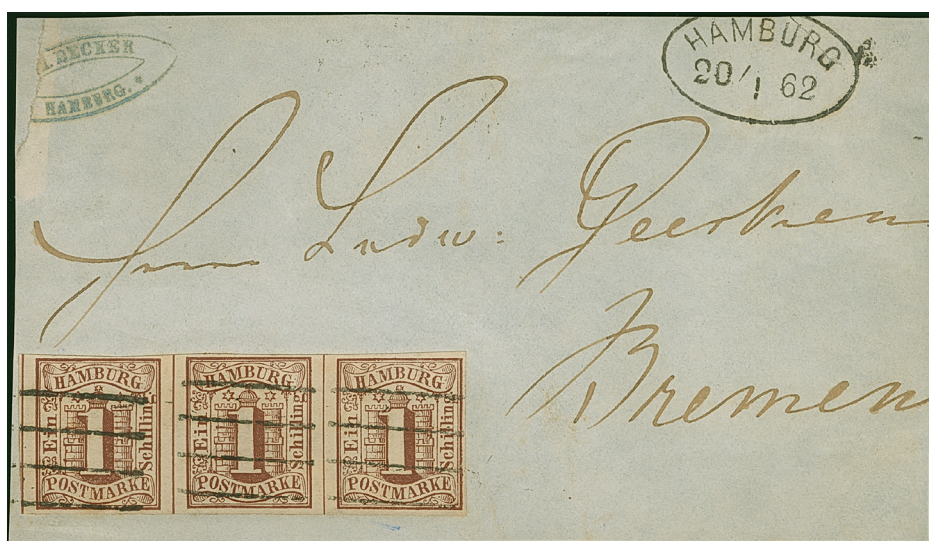 DECKER
HAMBURG.
HAMBURG
20/1 62
Herrn Ludw: Geerken
Bremen
HAMBURG
Ein 1 Schilling
POSTMARKE
HAMBURG
Ein 1 Schilling
POSTMARKE
HAMBURG
Ein 1 Schilling
POSTMARKE